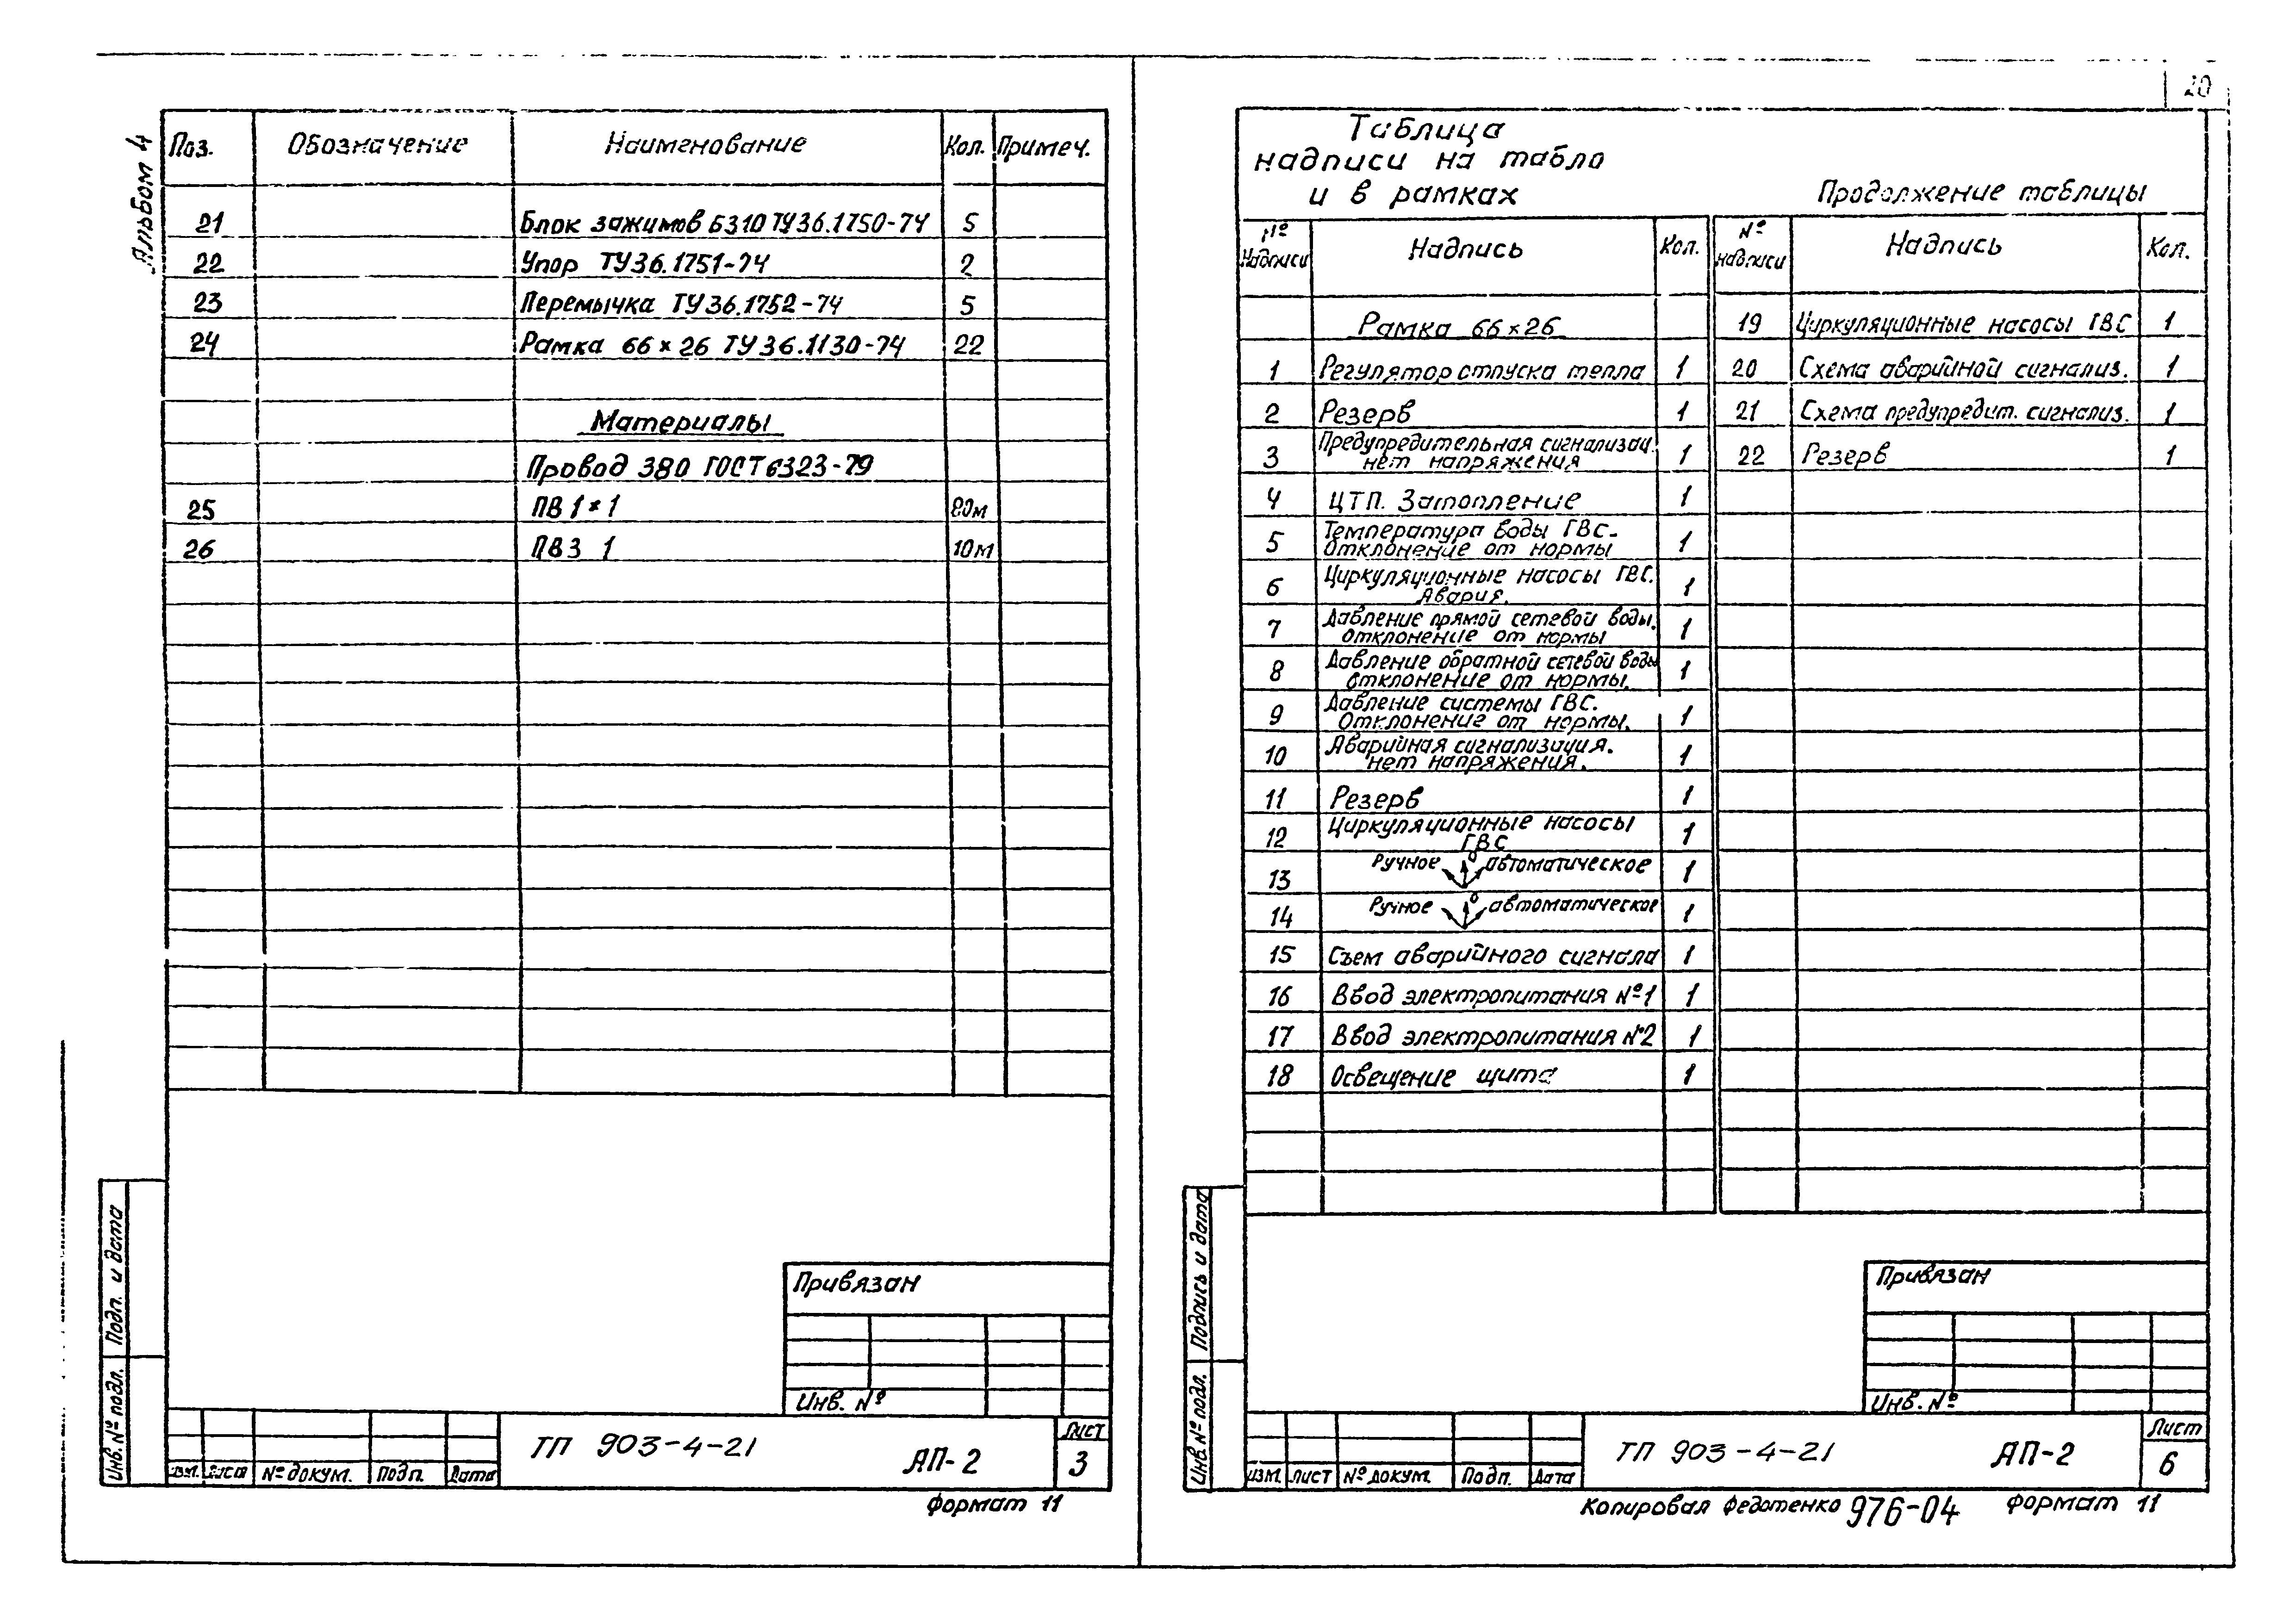 20
Альбом 4
Поз. Обозначение Наименование Кол. Примеч.
21 Блок зажимов БЗ10 ТУ36.1750-74 5
22 Упор ТУ36.1751-74 2
23 Перемычка ТУ36.1752-74 5
24 Рамка 66×26 ТУ36.1130-74 22
Материалы
Провод 380 ГОСТ 6323-79
25 ПВ 1×1 80м
26 ПВ3 1 10м
Привязан
Инв. №
Лист
ТП 903-4-21 АП-2 3
Изм. Лист № докум. Подп. Дата
Формат 11
Подп. и дата
Инв. № подл.
Таблица
надписи на табло
и в рамках
Продолжение таблицы
№ надписи Надпись Кол.
№ надписи Надпись Кол.
Рамка 66×26
1 Регулятор отпуска тепла 1
2 Резерв 1
3 Предупредительная сигнализац.
нет напряжения 1
4 ЦТП. Затопление 1
5 Температура воды ГВС-
отклонение от нормы 1
6 Циркуляционные насосы ГВС.
Авария. 1
7 Давление прямой сетевой воды.
отклонение от нормы 1
8 Давление обратной сетевой воды
отклонение от нормы. 1
9 Давление системы ГВС.
Отклонение от нормы. 1
10 Аварийная сигнализация.
нет напряжения. 1
11 Резерв 1
12 Циркуляционные насосы
ГВС 1
13 Ручное 0 автоматическое 1
14 Ручное 0 автоматическое 1
15 Съем аварийного сигнала 1
16 Ввод электропитания №1 1
17 Ввод электропитания №2 1
18 Освещение щита 1
19 Циркуляционные насосы ГВС 1
20 Схема аварийной сигнализ. 1
21 Схема предупредит. сигнализ. 1
22 Резерв 1
Привязан
Инв. №
Лист
ТП 903-4-21 АП-2 6
Изм. Лист № докум. Подп. Дата
Копировал Федотенко 976-04 Формат 11
Подпись и дата
Инв. № подл.